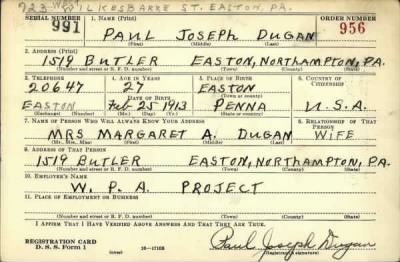 723 WILKESBARRE ST. EASTON, PA.
SERIAL NUMBER 1. NAME (Print) ORDER NUMBER
991 PAUL JOSEPH DUGAN 956
(First) (Middle) (Last)
2. ADDRESS (Print)
1519 BUTLER EASTON, NORTHAMPTON, PA.
(Number and street or R. F. D. number) (Town) (County) (State)
3. TELEPHONE 4. AGE IN YEARS 5. PLACE OF BIRTH 6. COUNTRY OF CITIZENSHIP
20647 27 EASTON
DATE OF BIRTH (Town or county)
EASTON Feb 25 1913 PENNA U.S.A.
(Exchange) (Number) (Mo.) (Day) (Yr.) (State or country)
7. NAME OF PERSON WHO WILL ALWAYS KNOW YOUR ADDRESS 8. RELATIONSHIP OF THAT PERSON
MRS MARGARET A. DUGAN WIFE
(Mr., Mrs., Miss) (First) (Middle) (Last)
9. ADDRESS OF THAT PERSON
1519 BUTLER EASTON, NORTHAMPTON, PA.
(Number and street or R. F. D. number) (Town) (County) (State)
10. EMPLOYER'S NAME
W. P. A. PROJECT
11. PLACE OF EMPLOYMENT OR BUSINESS
(Number and street or R. F. D. number) (Town) (County) (State)
I AFFIRM THAT I HAVE VERIFIED ABOVE ANSWERS AND THAT THEY ARE TRUE.
REGISTRATION CARD
D. S. S. Form 1 (over) 16-17105
Paul Joseph Dugan
(Registrant's signature)